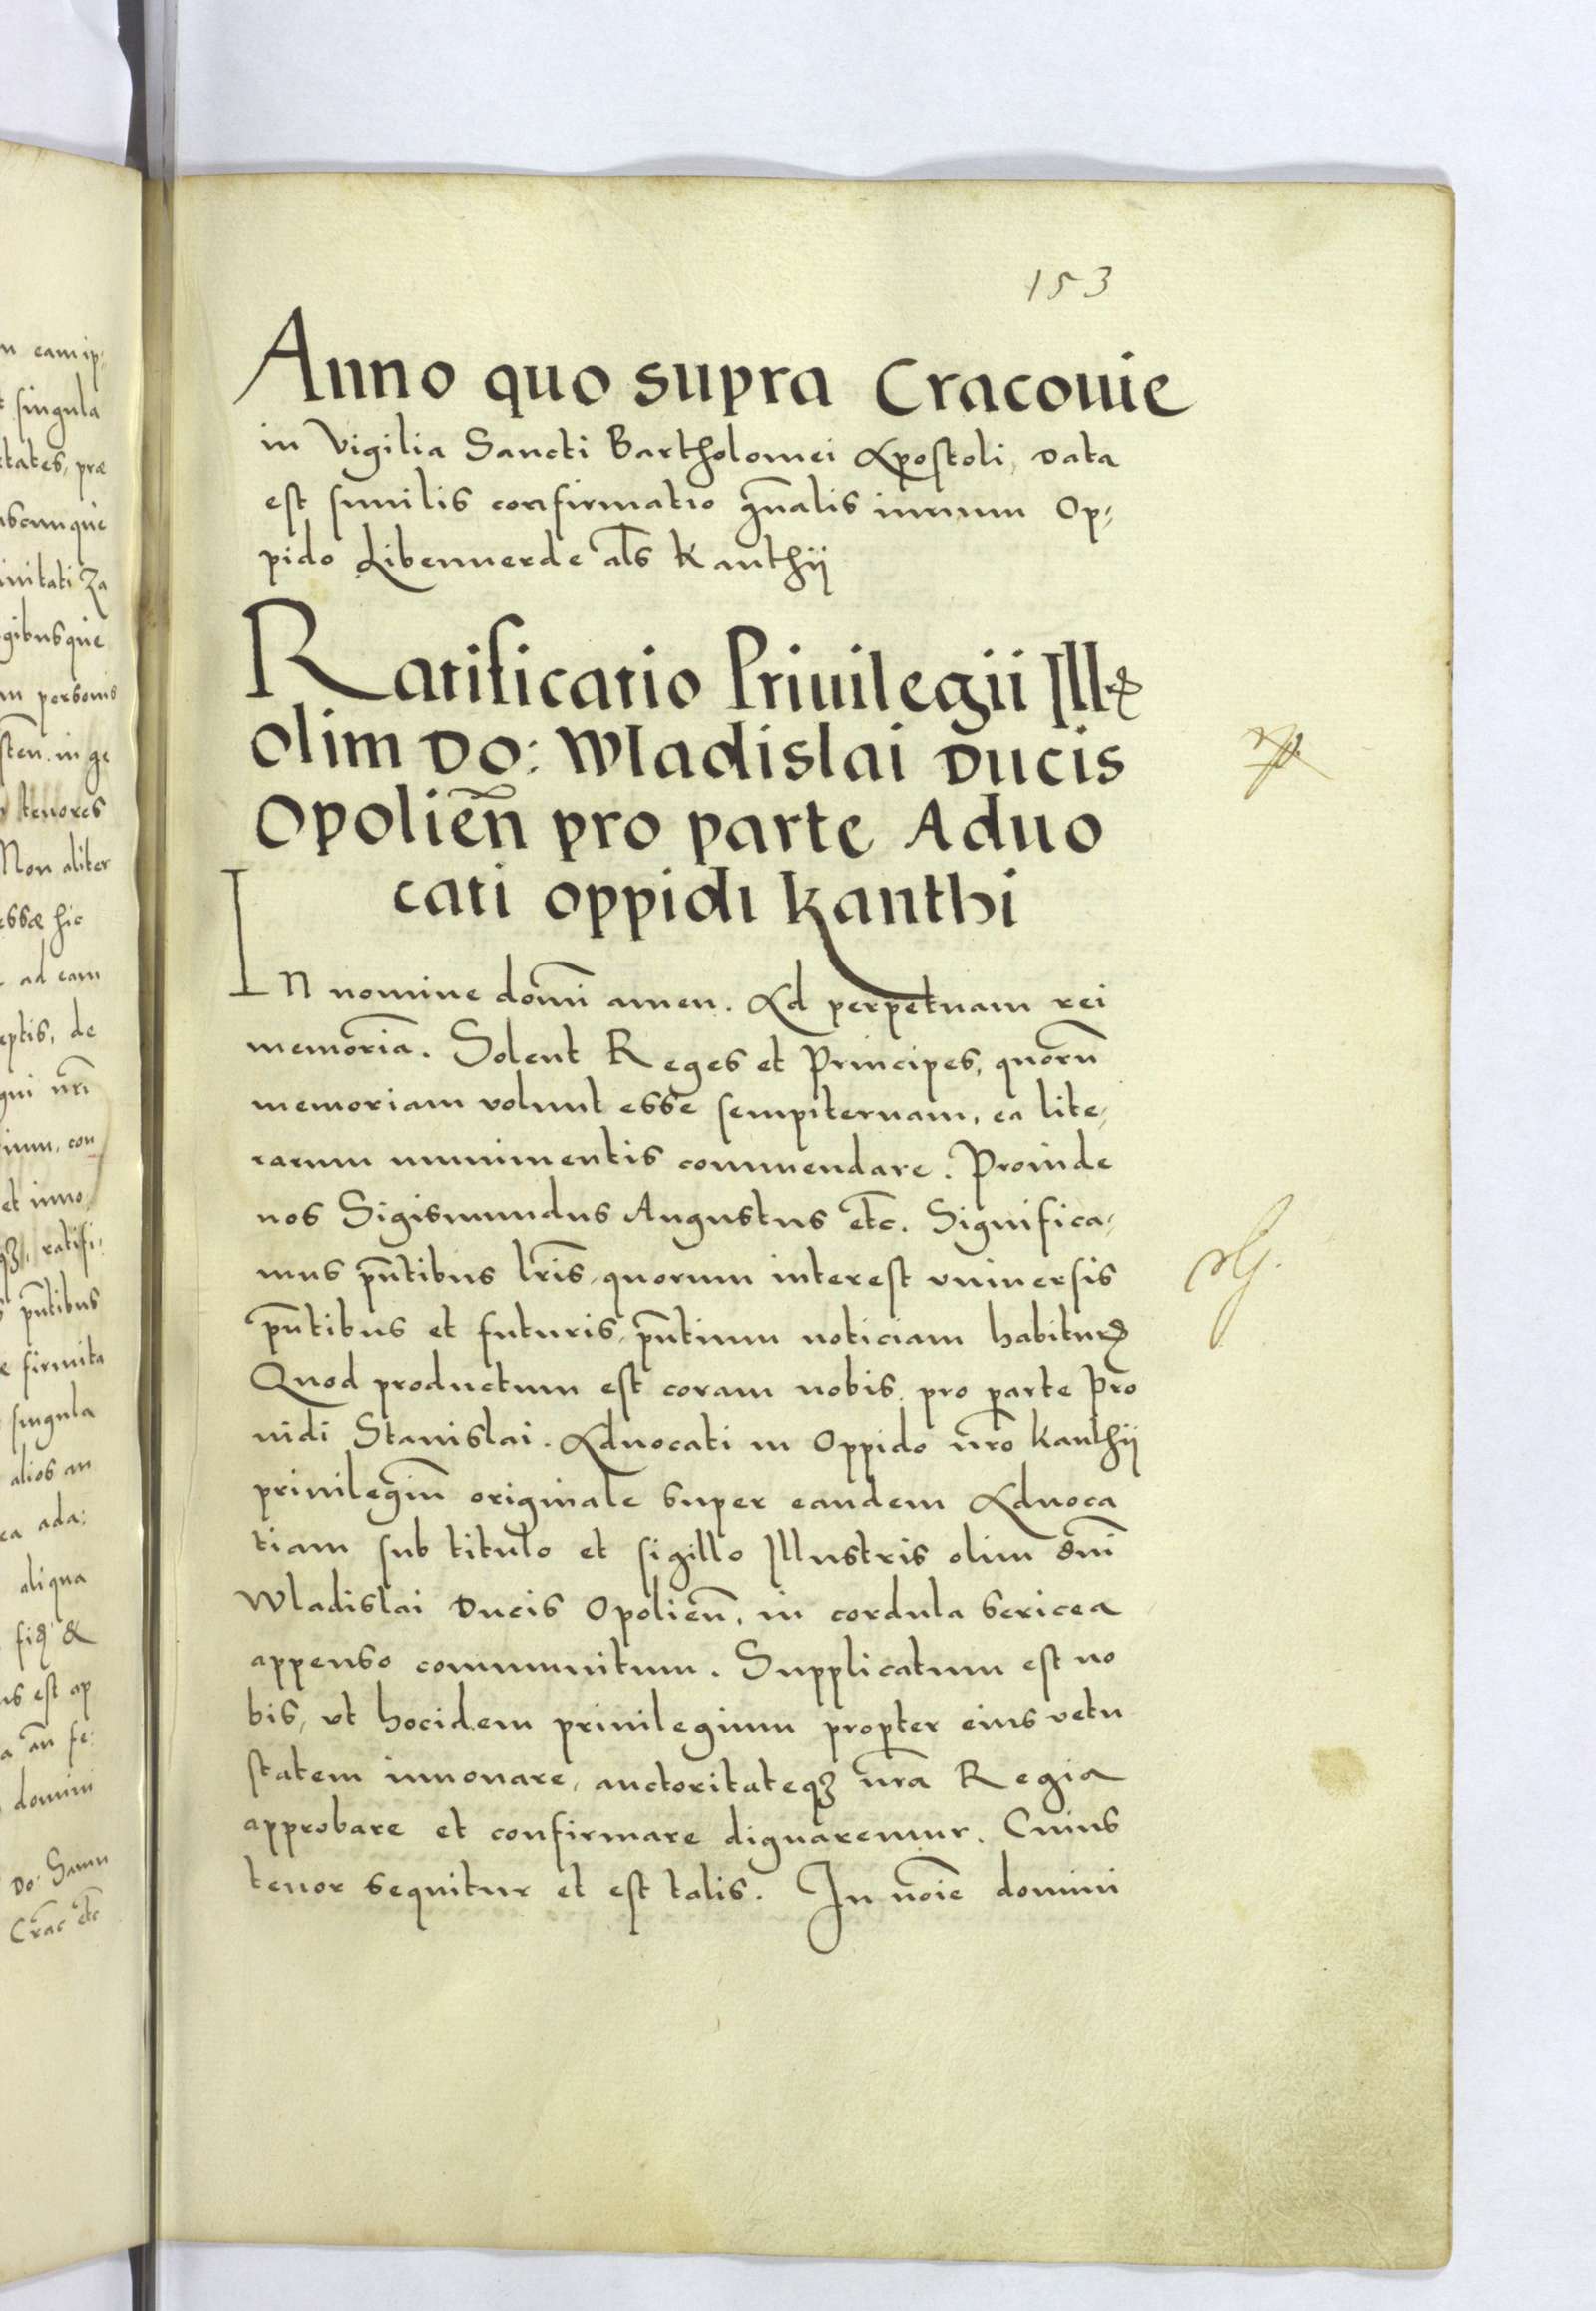 153
Anno quo supra Cracouie
in Vigilia Sancti Bartholomei Apostoli, data
est similis confirmatio gñalis iurium Op,
pido Libenuerde als Kanthij
Ratificatio Priuilegii Ill
olim Do: Wladislai Ducis
Opolieñ pro parte Aduo
cati oppidi Kanthi
In nomine domĩ amen. Ad perpetuam rei
memoriã. Solent Reges et Principes, quorũ
memoriam volunt esse sempiternam, ea lite,
rarum munimentis commendare. Proinde
nos Sigismundus Augustus etc. Significa,
mus pñtibus lris, quorum interest vniuersis
pñtibus et futuris, pñtium noticiam habituꝝ
Quod productum est coram nobis, pro parte Pro
uidi Stanislai. Aduocati in Oppido nr̃o Kanthij
priuilegiũ originale super eandem Aduoca
tiam sub titulo et sigillo Illustris olim dñi
Wladislai Ducis Opolieñ, in cordula sericea
appenso communitum. Supplicatum est no
bis, vt hocidem priuilegium propter eius vetu
statem innouare, auctoritateqꝫ nr̃a Regia
approbare et confirmare dignaremur. Cuius
tenor sequitur et est talis. In noĩe domini
n eam ip,
singula
tates, præ
uscunque
initati Za
gibusque
m personis
sten. in ge
tenores
Non aliter
essæ hic
ad eam
eptis, de
qui nri
ium, con
et inno
qꝫ, ratifi,
pñtibus
e firmita
singula
alios an
ea ada:
aliqua
us est ap
a añ fe:
domini
Do: Samu
Crac etc